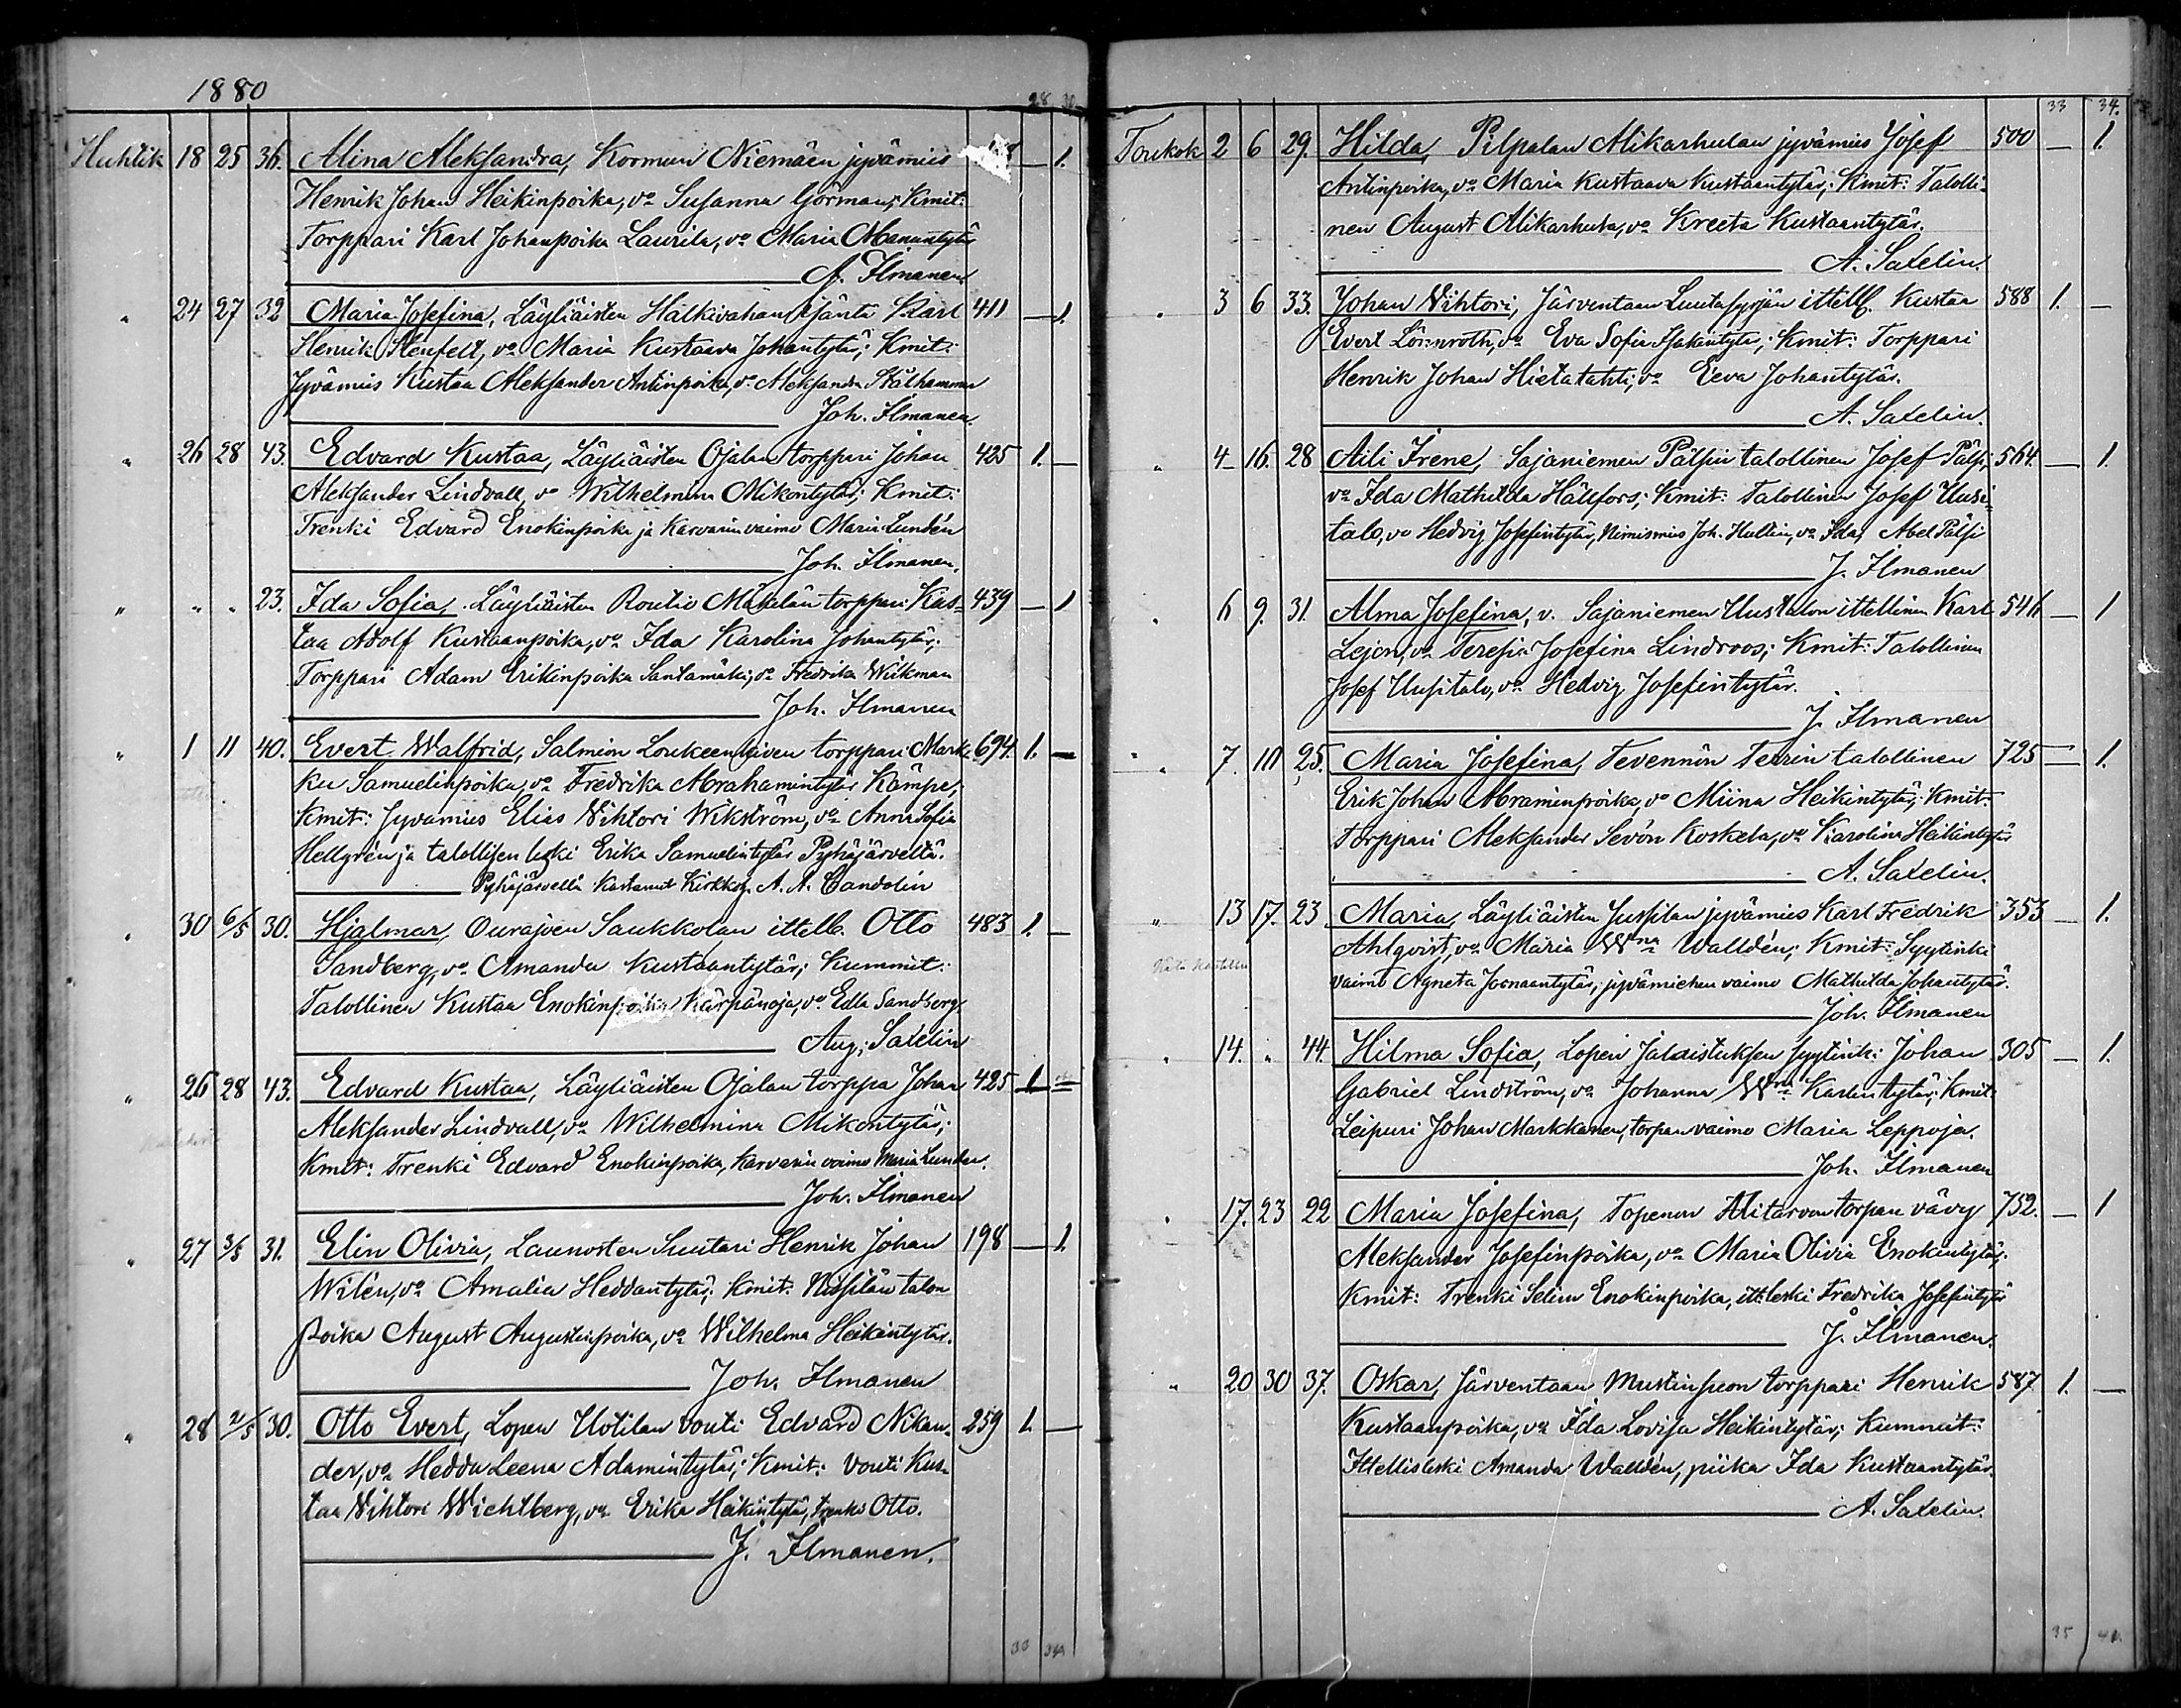 1880
28 30
Huhtik 18 25 36. Alina Aleksandra, Kormun Niemäen jyvämies 1.
Henrik Johan Heikinpoika, vo Susanna Görman; Kmit:
Torppari Karl Johanpoika Laurila, vo Maria Manuntytär
A. Ilmanen
" 24 27 32 Maria Josefina, Läyliäisten Hälkivahan Karl 411 — 1.
Henrik Stenfelt, vo Maria Kustaava Johantytär; Kmit:
Jyvämies Kustaa Aleksander Antinpoika, vo Aleksandra Stålhammar
Joh. Ilmanen
" 26 28 43. Edvard Kustaa, Läyliäisten Ojalan torppari Johan 425 1. —
Aleksander Lindvall, vo Wilhelmina Mikontytär; Kmit:
Trenki Edvard Enokinpoika ja Karvarin vaimo Maria Lundén
Joh. Ilmanen.
" " " 23. Ida Sofia, Läyliäisten Routio Mäkelän torppari Kus- 439 — 1
taa Adolf Kustaanpoika, vo Ida Karolina Johantytär;
Torppari Adam Erikinpoika Santamäki, vo Fredrika Wikman
Joh. Ilmanen
" 1 11 40. Evert Walfrid, Salmion Loukeenkiven torppari Mark- 694. 1. —
ku Samuelinpoika, vo Fredrika Abrahamintytär Kämpe;
Kmit: Jyvämies Elias Wihtori Wikström, vo Anna Sofia
Hellgrén ja talollisen leski Erika Samuelintytär Pyhäjärveltä.
Pyhäjärvellä Kastanut Kirkkoh. A. A. Candolin
" 30 6/5 30. Hjalmar, Ourajoen Saukkolan ittell. Otto 483 1. —
Sandberg, vo Amanda Kustaantytär; Kummit:
Talollinen Kustaa Enokinpoika Kärpänoja, vo Edla Sandberg.
Aug. Saxelin
" 26 28 43. Edvard Kustaa, Läyliäisten Ojalan torppa Johan 425 1. —
Aleksander Lindvall, vo Wilhelmina Mikontytär;
Kmit: Trenki Edvard Enokinpoika, Karvarin vaimo Maria Lunden.
Joh. Ilmanen
" 27 3/5 31. Elin Olivia, Launosten Suutari Henrik Johan 198 — 1.
Wilén, vo Amalia Heddantytär; Kmit: Nissilän talon
poika August Augustinpoika, vo Wilhelma Heikintytär.
Joh. Ilmanen
" 28 2/5 30. Otto Evert, Lopen Uotilan vouti Edvard Nikan- 259 1. —
der, vo Hedda Leena Adamintytär; Kmit: Vouti Kus-
taa Wihtori Wichtberg, vo Erika Heikintytär, trenki Otto.
J. Ilmanen.
33 34
33 34.
Toukok 2 6 29. Hilda, Pilpalan Alikarhulan jyvämies Josef 500 — 1.
Antinpoika, vo Maria Kustaava Kustaantytär; Kmit: Talolli-
nen August Alikarhula, vo Kreeta Kustaantytär.
A. Saxelin.
" 3 6 33. Johan Wihtori, Järventaan Luutasyrjän ittell. Kustaa 588 1. —
Evert Lönnroth, vo Eva Sofia Isakintytär; Kmit: Torppari
Henrik Johan Hietalahti, vo Eeva Johantytär.
A. Saxelin.
" 4 16. 28 Aili Irene, Sajaniemen Pälsin talollinen Josef Pälsi, 564. — 1.
vo Ida Mathilda Hällfors; Kmit: Talollinen Josef Uusi-
talo, vo Hedvig Josefintytär, Nimismies Joh. Hullin, vo Ida, Abel Pälsi
J. Ilmanen
" 6 9. 31. Alma Josefina, v. Sajaniemen Uustalon ittellinen Karl 546 — 1
Lejon, vo Teresia Josefina Lindroos; Kmit: Talollinen
Josef Uusitalo, vo Hedvig Josefintytär.
J. Ilmanen
" 7. 10 25. Maria Josefina, Tevennön Terrin talollinen 725 — 1.
Erik Johan Abraminpoika, vo Miina Heikintytär; Kmit:
Torppari Aleksander Sevón Koskela, vo Karolina Heikintytär
A. Saxelin.
" 13 17. 23 Maria, Läyliäisten Jussilan jyvämies Karl Fredrik 353 — 1.
Ahlqvist, vo Maria Wna Walldén; Kmit: Syytinki
vaimo Agneta Joonaantytär, jyvämiehen vaimo Mathilda Johantytär.
Joh. Ilmanen
" 14. " 44. Hilma Sofia, Lopen Jalaistuksen syytinki Johan 305 — 1.
Gabriel Lindström, vo Johanna Wna Karlintytär; Kmit:
Leipuri Johan Markkanen, torpan vaimo Maria Leppoja.
Joh. Ilmanen
" 17. 23 22 Maria Josefina, Topenon Alitarvon torpan vävy 752. — 1
Aleksander Josefinpoika, vo Maria Olivia Enokintytär;
Kmit: Trenki Selim Enokinpoika, itt. leski Fredrika Josefintytär
J. Ilmanen.
" 20 30 37. Oskar, Järventaan Mustinsuon torppari Henrik 587 1. —
Kustaanpoika, vo Ida Lovisa Heikintytär; Kummit:
Ittellisleski Amanda Walldén, piika Ida Kustaantytär.
A. Saxelin.
35